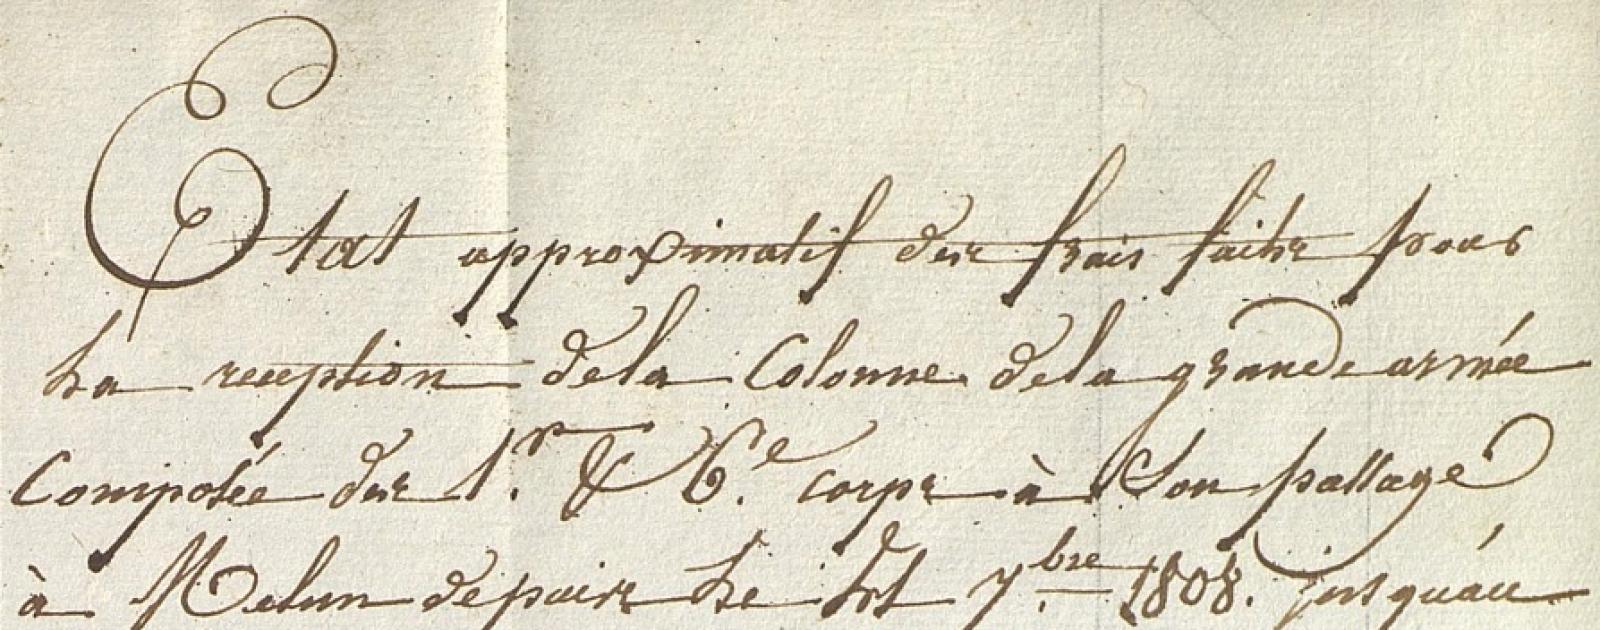 Etat approximatif des frais faits pour
La reception de la Colonne de la grande armée
Composée des 1.er & 6.e corps à Son passage
à Melun depuis Le 7.bre 1808. jusqu'au